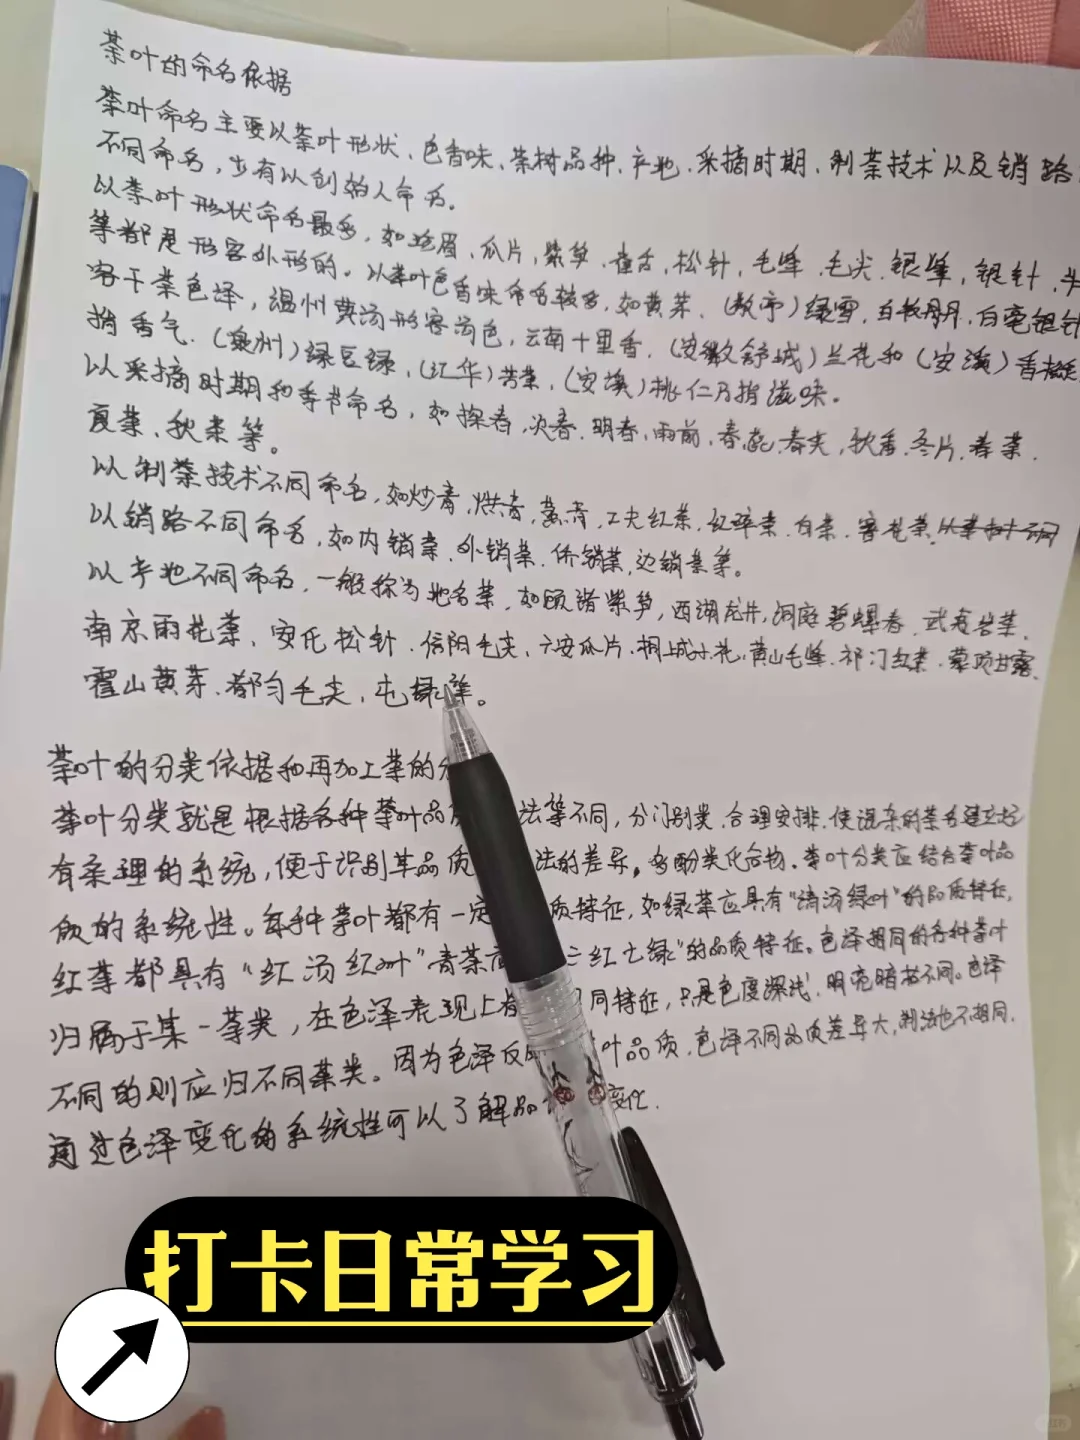 茶叶的命名依据
茶叶命名主要以茶叶形状、色香味、茶树品种、产地、采摘时期、制茶技术以及销路
不同命名，少有以创始人命名。
以茶叶形状命名最多，如珍眉、瓜片，紫笋、雀舌，松针，毛峰、毛尖、银峰，银针，
等都是形容外形的。以茶叶色香味命名较多，如黄芽、（敬亭）绿雪、白牡丹、白毫银针
容干茶色泽，温州黄汤形容汤色，云南十里香，（安徽舒城）兰花和（安溪）香
指香气，（泉州）绿豆绿，（江华）苦茶，（安溪）桃仁乃指滋味。
以采摘时期和季节命名，如探春，次春、明春，雨前，春蕊、春尖，秋香、冬片、春茶、
夏茶、秋茶等。
以制茶技术不同命名，如炒青，烘青，蒸青，工夫红茶，红碎茶、白茶、窨花茶，
以销路不同命名，如内销茶、外销茶、侨销茶，边销茶等。
以产地不同命名，一般称为地名茶，如顾渚紫笋，西湖龙井，洞庭碧螺春，武夷岩茶，
南京雨花茶、安化松针、信阳毛尖、六安瓜片、桐城小花，黄山毛峰、祁门红茶、蒙顶甘露、
霍山黄芽、都匀毛尖，屯绿等。
茶叶的分类依据和再加工茶的分
茶叶分类就是根据各种茶叶品 法等不同，分门别类，合理安排，使混杂的茶名建立起
有条理的系统，便于识别其品质 法的差异。多酚类化合物，茶叶分类应结合茶叶品
质的系统性。每种茶叶都有一定 质特征，如绿茶应具有“清汤绿叶”的品质特征，
红茶都具有“红汤红叶”青茶 三红七绿”的品质特征。色泽相同的各种茶叶
归属于某一茶类，在色泽表现上 同特征，只是色度深浅、明亮暗枯不同。色泽
不同的则应归不同茶类。因为色泽反 叶品质，色泽不同品质差异大，制法也不相同，
通过色泽变化的系统性可以了解品 变化。
打卡日常学习